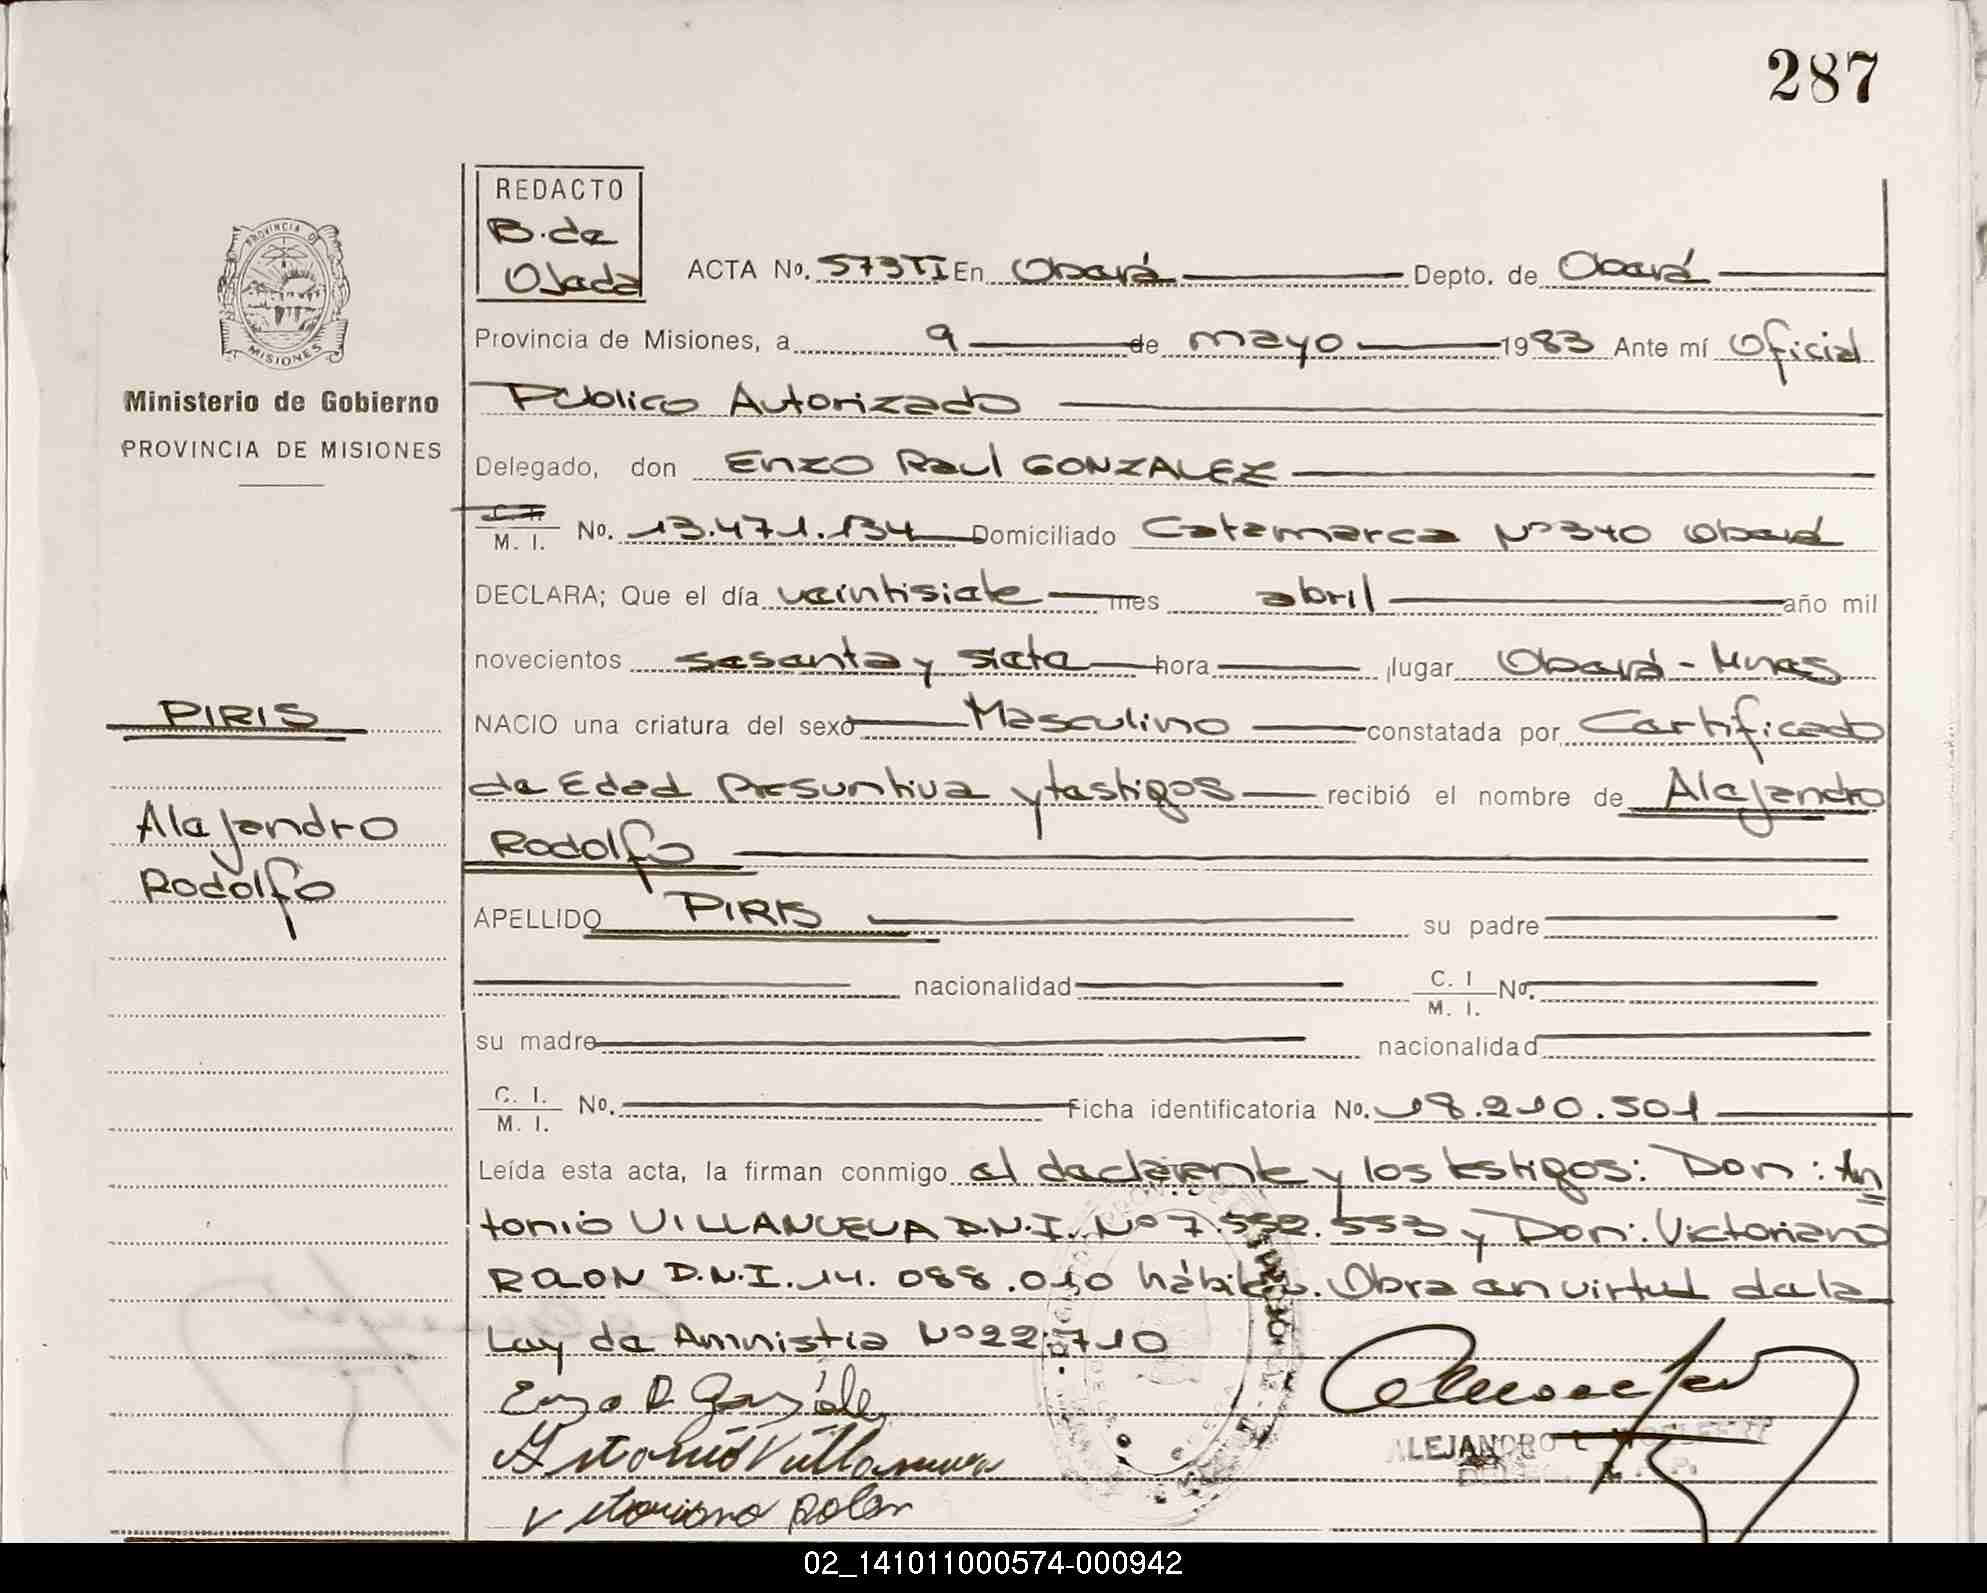 287
REDACTO
B. de
Ojada
PROVINCIA DE
MISIONES
Ministerio de Gobierno
PROVINCIA DE MISIONES
ACTA No. 573 TI En Oberá Depto. de Oberá
Provincia de Misiones, a 9 de mayo 1983 Ante mí Oficial
Público Autorizado
Delegado, don Enzo Raul GONZALEZ
C. I.
M. I. No. 13.471.134 Domiciliado Catamarca Nº 340 Oberá
DECLARA; Que el día veintisiete mes abril año mil
novecientos sesenta y siete hora lugar Oberá - Mnes
NACIO una criatura del sexo Masculino constatada por Certificado
de Edad Presuntiva y testigos recibió el nombre de Alejandro
Rodolfo
APELLIDO PIRIS su padre
nacionalidad C. I
M. I. No.
su madre nacionalidad
C. I.
M. I. No. Ficha identificatoria No. 18.210.501
Leída esta acta, la firman conmigo el declarante y los testigos: Don: An
tonio VILLANUEVA D.N.I. Nº 7.552.553 y Don: Victoriano
ROLON D.N.I. 14.088.010 hábiles. Obra en virtud de la
Ley de Amnistia Nº 22.710
Enzo R González
Antonio Villanueva
Victoriano Rolon
ALEJANDRO
PIRIS
Alejandro
Rodolfo
02_141011000574-000942